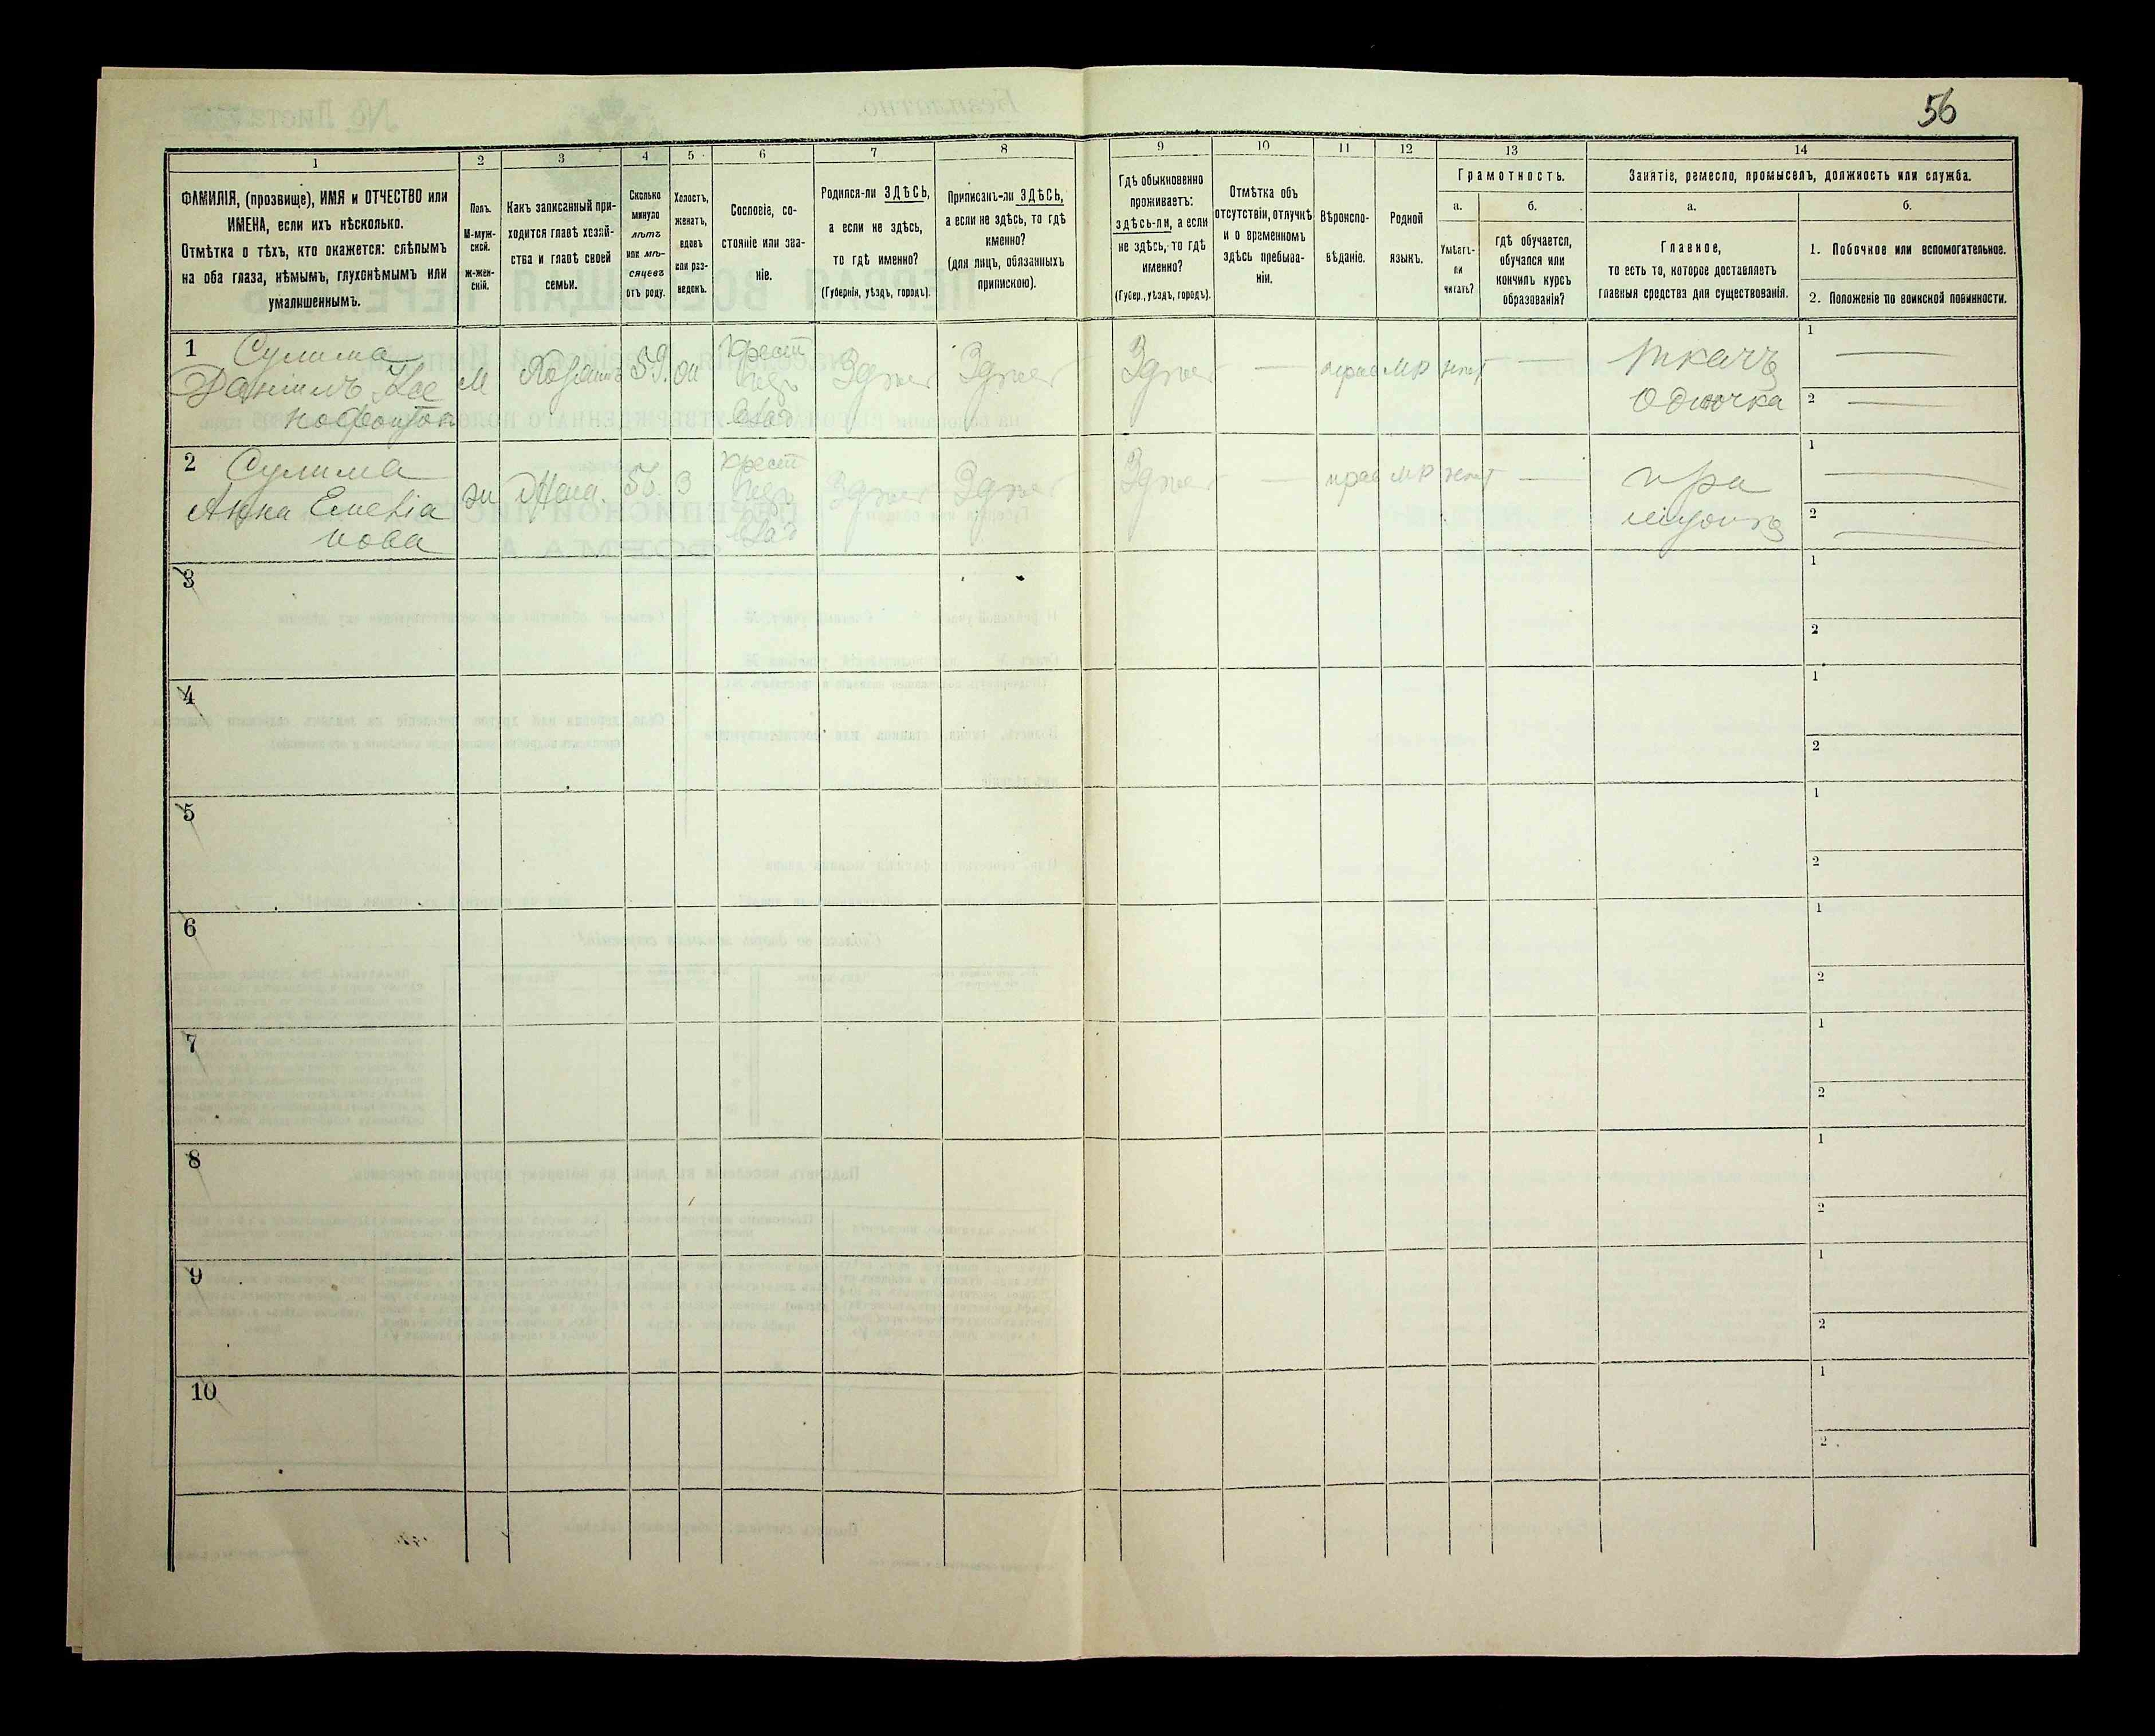 56
1 2 3 4 5 6 7 8 9 10 11 12 13 14
ФАМИЛІЯ, (прозвище), ИМЯ и ОТЧЕСТВО или
ИМЕНА, если ихъ нѣсколько.
Отмѣтка о тѣхъ, кто окажется: слѣпымъ
на оба глаза, нѣмымъ, глухонѣмымъ или
умалишеннымъ.
Полъ.
М-муж-
ской.
ж-жен-
скій.
Какъ записанный при-
ходится главѣ хозяй-
ства и главѣ своей
семьи.
Сколько
минуло
лѣтъ
или мѣ-
сяцевъ
отъ роду.
Холостъ,
женатъ,
вдовъ
или раз-
веденъ.
Сословіе, со-
стояніе или зва-
ніе.
Родился-ли ЗДѢСЬ,
а если не здѣсь,
то гдѣ именно?
(Губернія, уѣздъ, городъ).
Приписанъ-ли ЗДѢСЬ,
а если не здѣсь, то гдѣ
именно?
(для лицъ, обязанныхъ
припискою).
Гдѣ обыкновенно
проживаетъ:
здѣсь-ли, а если
не здѣсь, то гдѣ
именно?
(Губер., уѣздъ, городъ).
Отмѣтка объ
отсутствіи, отлучкѣ
и о временномъ
здѣсь пребыва-
ніи.
Вѣроиспо-
вѣданіе.
Родной
языкъ.
Грамотность.
а.
Умѣетъ-
ли
читать?
б.
гдѣ обучается,
обучался или
кончилъ курсъ
образованія?
Занятіе, ремесло, промыселъ, должность или служба.
а.
Главное,
то есть то, которое доставляетъ
главныя средства для существованія.
б.
1. Побочное или вспомогательное.
2. Положеніе по воинской повинности.
1 Сулима
Даніилъ
М
59
крест
Здѣсь
Здѣсь
Здѣсь
—
прав
мр
нѣт
—
ткачъ
одиночка
1 —
2 —
2 Сулима
Анна Емелія
нова
жена
3
крест
Здѣсь
Здѣсь
Здѣсь
—
прав
мр
нѣт
—
при
мужѣ
1 —
2 —
3
1
2
4
1
2
5
1
2
6
1
2
7
1
2
8
1
2
9
1
2
10
1
2